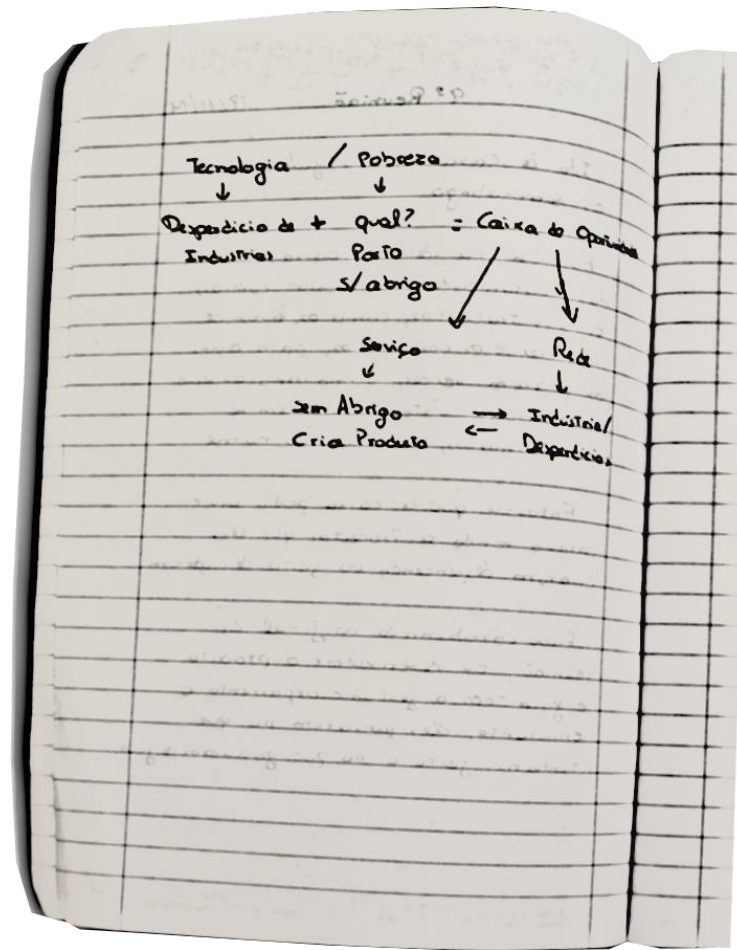 Tecnologia / Pobreza
↓ ↓
Desperdicio de + qual? = Caixa de
Industrias Porto
s/ abrigo
Serviço Rede
↓ ↓
sem Abrigo → Indústria/
Cria Produto ← Desperdicios